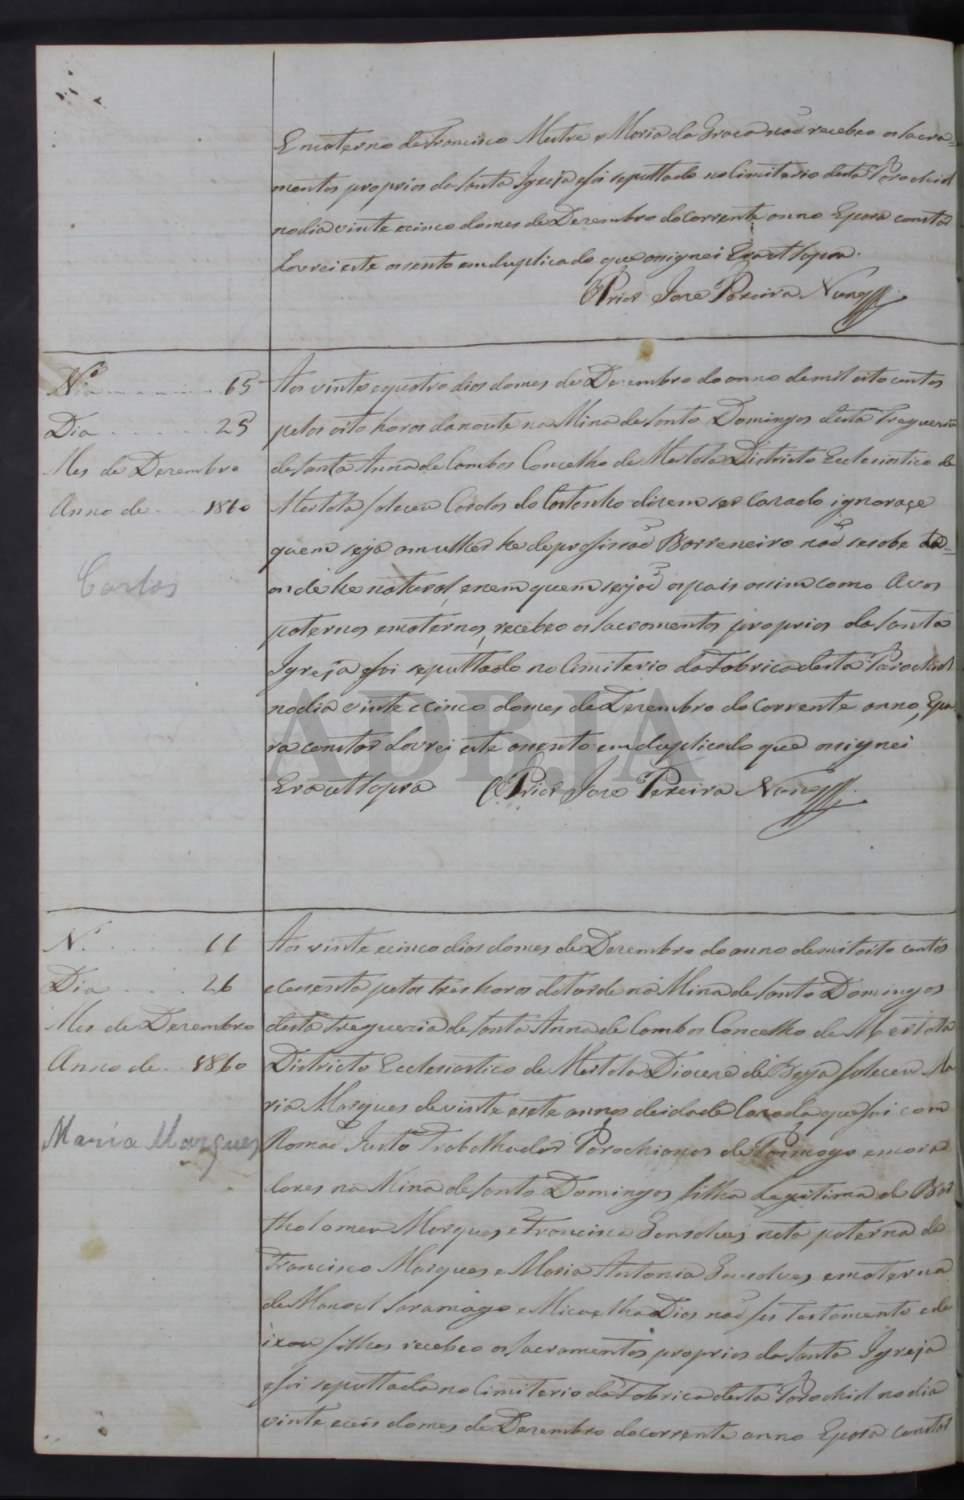 E materno de Francisco Mestre e Maria da Graça não recebeo os Sacra=
mentos proprios da Santa Igreja e foi sepultado no Cimiterio desta Parochial
no dia vinte e cinco do mes de Dezembro do corrente anno E para constar
Lavrei este assento em duplicado que assignei Era ut supra.
O Prior Jose Pereira Nunes
N.º 65
Dia 25
Mes de Dezembro
Anno de 1860
Carlos
Aos vinte e quatro dias do mes de Dezembro do anno de mil oito centos
pelas oito horas da noute na Mina de Santo Domingos desta Freguezia
de Santa Anna de Cambas Concelho de Mertola Districto Ecclesiastico de
Mertola faleceu Carlos do dizem ser Cazado ignoraçe
quem seja a mulher he de profissão Barreneiro não se sabe
onde he natural, e nem quem sejão os pais assim como Avos
paternos e maternos, recebeo os Sacramentos proprios da Santa
Igreja e foi sepultado no Cimiterio da Fabrica desta Parochial
no dia vinte e cinco do mes de Dezembro do corrente anno, E pa
ra constar Lavrei este assento em duplicado que assignei
Era ut supra O Prior Jose Pereira Nunes
ADBJA
N.º 66
Dia 26
Mes de Dezembro
Anno de 1860
Maria Marques
Aos vinte e cinco dias do mes de Dezembro do anno de mil oito centos
e cesenta pelas tres horas da tarde na Mina de Santo Domingos
desta Freguezia de Santa Anna de Cambas Concelho de Mertola
Districto Ecclesiastico de Mertola Diocese de Beja faleceu Ma
ria Marques de vinte e sete annos de idade Cazada que foi com
Romão Justo Trabalhador Parochianos de e mora
dores na Mina de Santo Domingos filha Legitima de Bar
tholomeu Marques e Francisca Gonsalves, neta paterna de
Francisco Marques e Maria Antonia Gonsalves, e materna
de Manoel Saramago e Micaella Dias não fes testamento e de
ixou filhos recebeo os Sacramentos proprios da Santa Igreja
e foi sepultada no Cimiterio da Fabrica desta Parochial no dia
vinte e ceis do mes de Dezembro do corrente anno E para constar